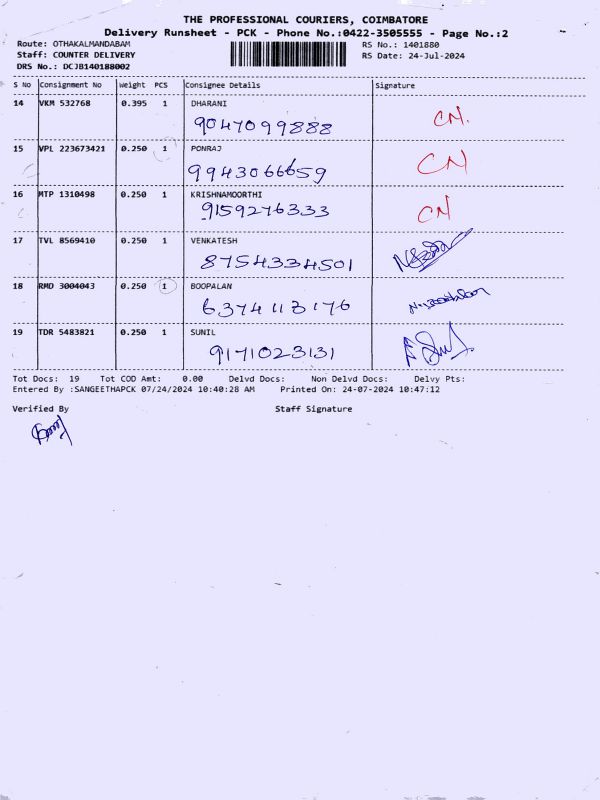 THE PROFESSIONAL COURIERS, COIMBATORE
Delivery Runsheet - PCK - Phone No.:0422-3505555 - Page No.:2
Route: OTHAKALMANDABAM RS No.: 1401880
Staff: COUNTER DELIVERY RS Date: 24-Jul-2024
DRS No.: DCJB140188002
S No Consignment No Weight PCS Consignee Details Signature
14 VKM 532768 0.395 1 DHARANI
9047099888 CN.
15 VPL 223673421 0.250 1 PONRAJ
9943066659 CN
16 MTP 1310498 0.250 1 KRISHNAMOORTHI
9159276333 CN
17 TVL 8569410 0.250 1 VENKATESH
8754334501
18 RMD 3004043 0.250 1 BOOPALAN
6374113176
19 TDR 5483821 0.250 1 SUNIL
9171023131
Tot Docs: 19 Tot COD Amt: 0.00 Delvd Docs: Non Delvd Docs: Delvy Pts:
Entered By :SANGEETHAPCK 07/24/2024 10:40:28 AM Printed On: 24-07-2024 10:47:12
Verified By Staff Signature